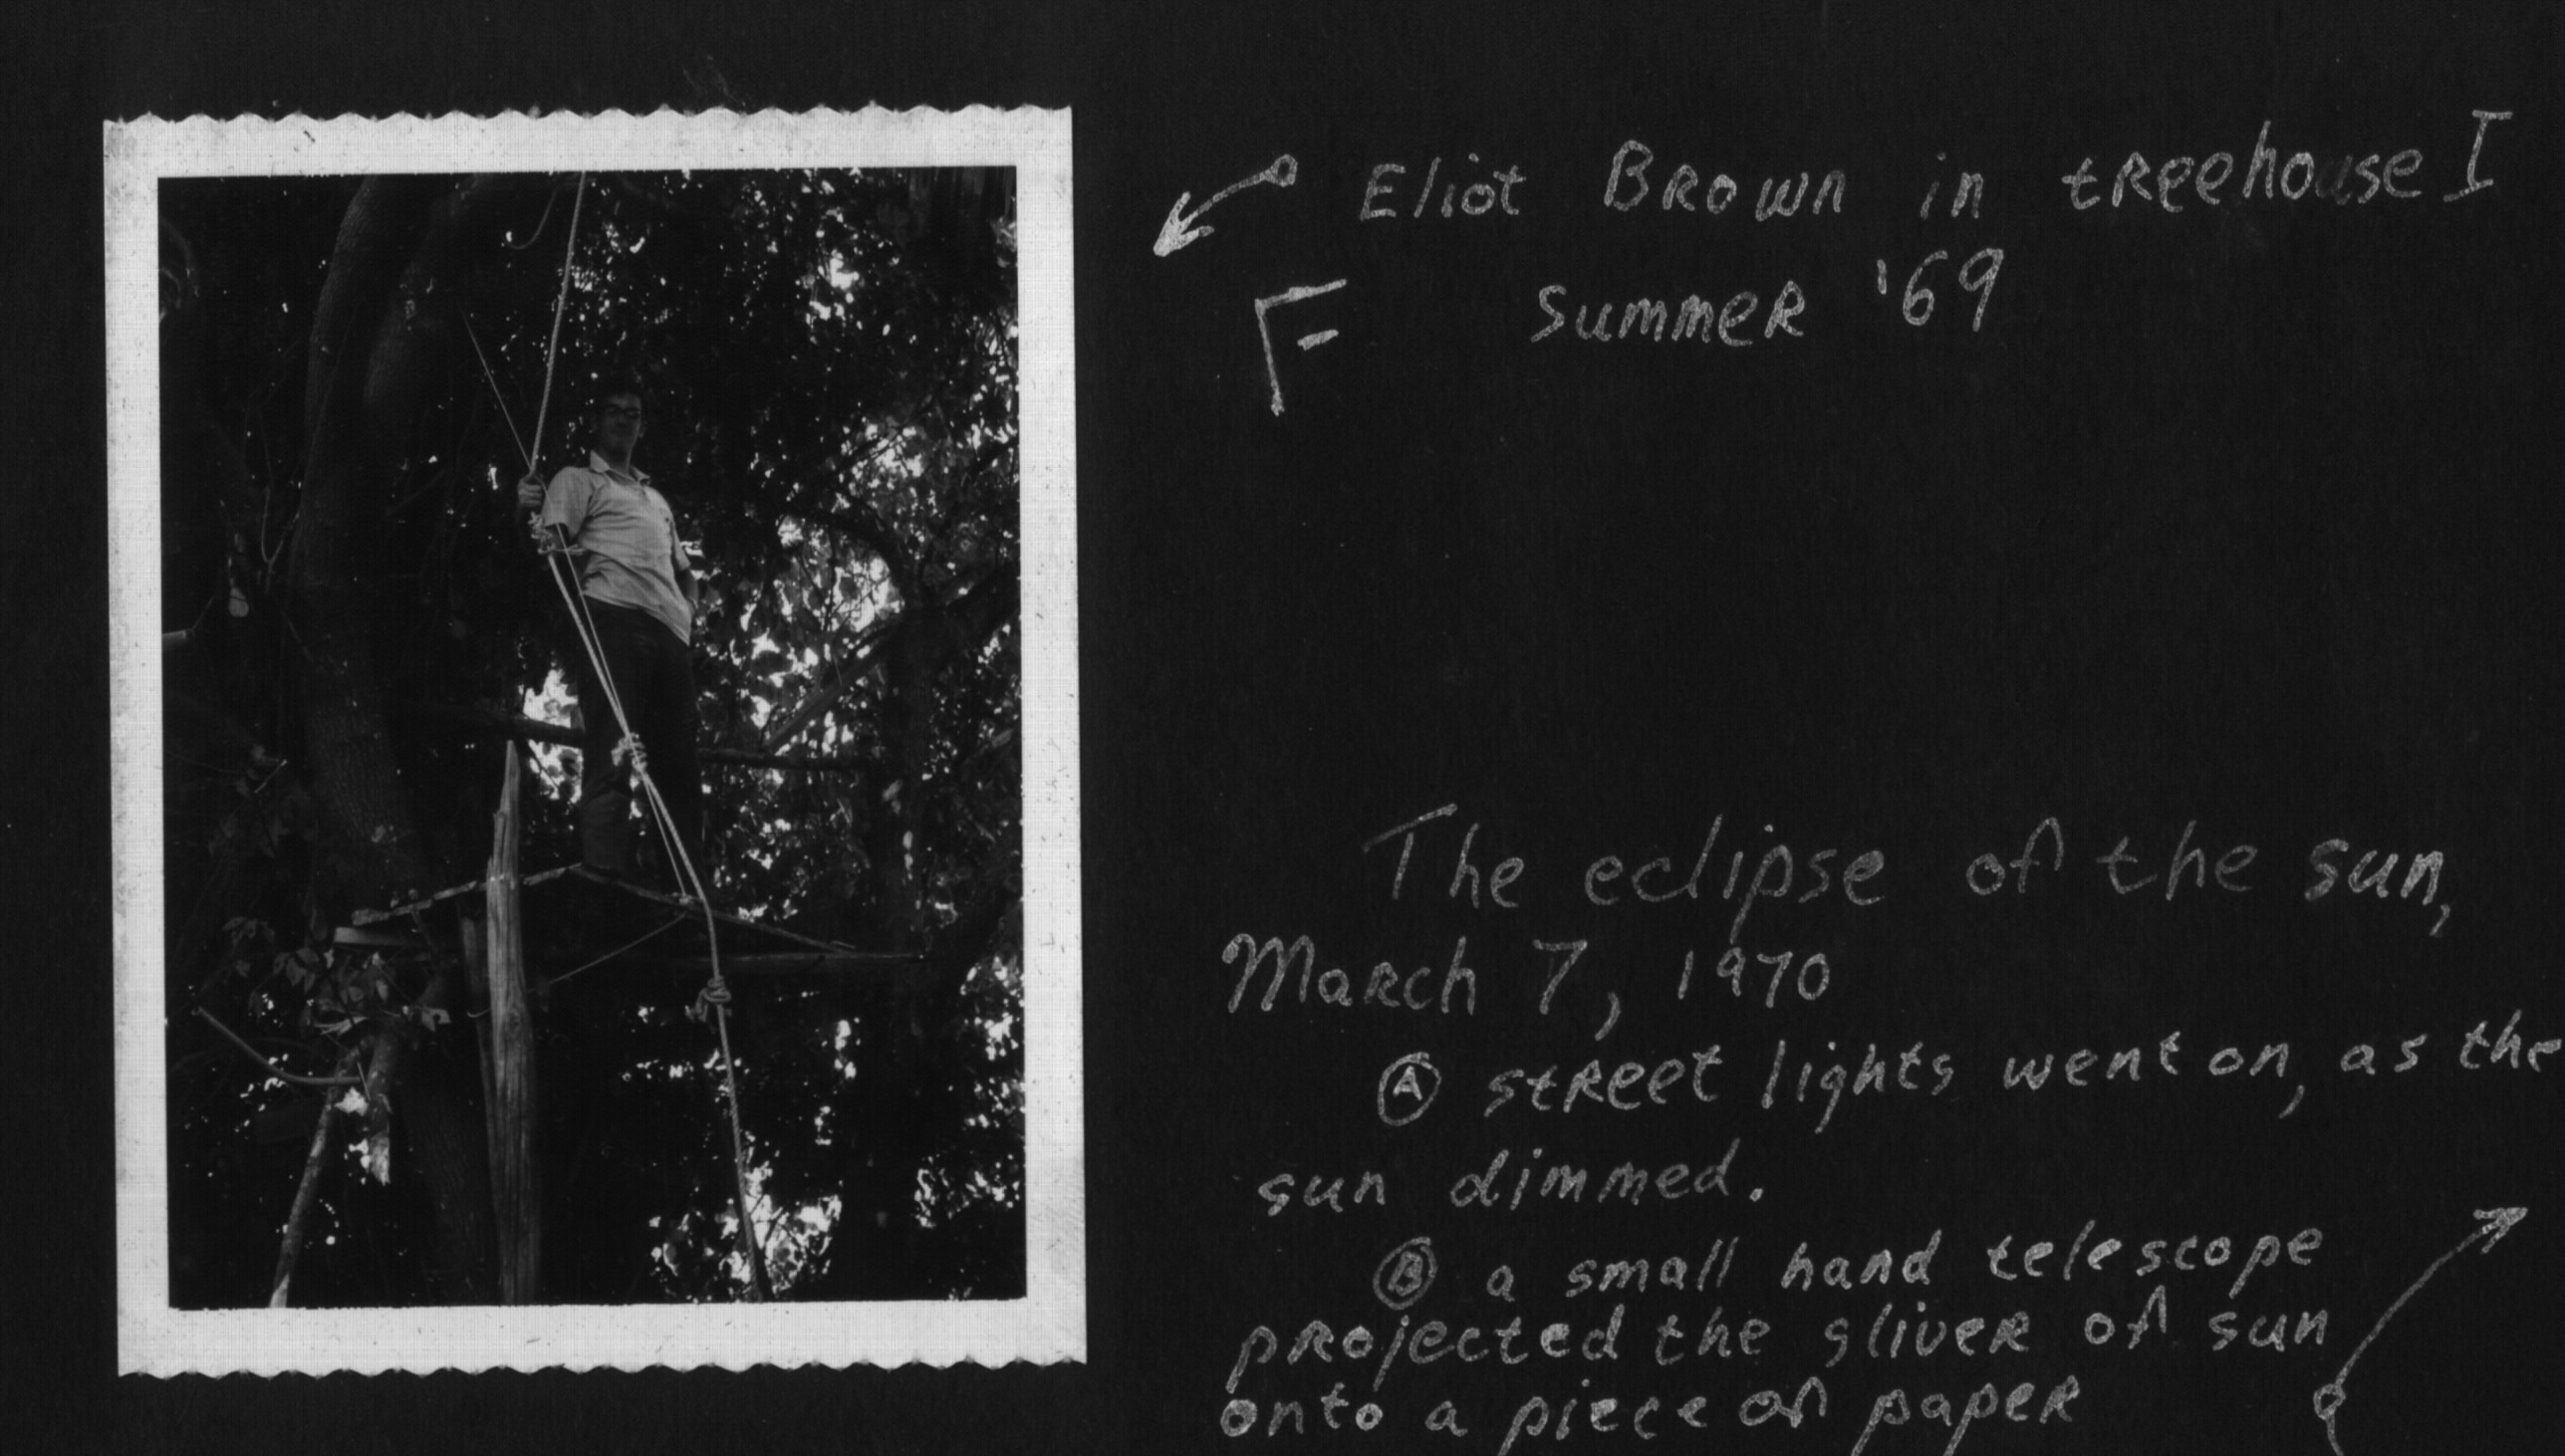 Eliot Brown in treehouse I
Summer '69
F
The eclipse of the sun,
March 7, 1970
Ⓐ street lights went on, as the
sun dimmed.
Ⓑ a small hand telescope
projected the sliver of sun
onto a piece of paper